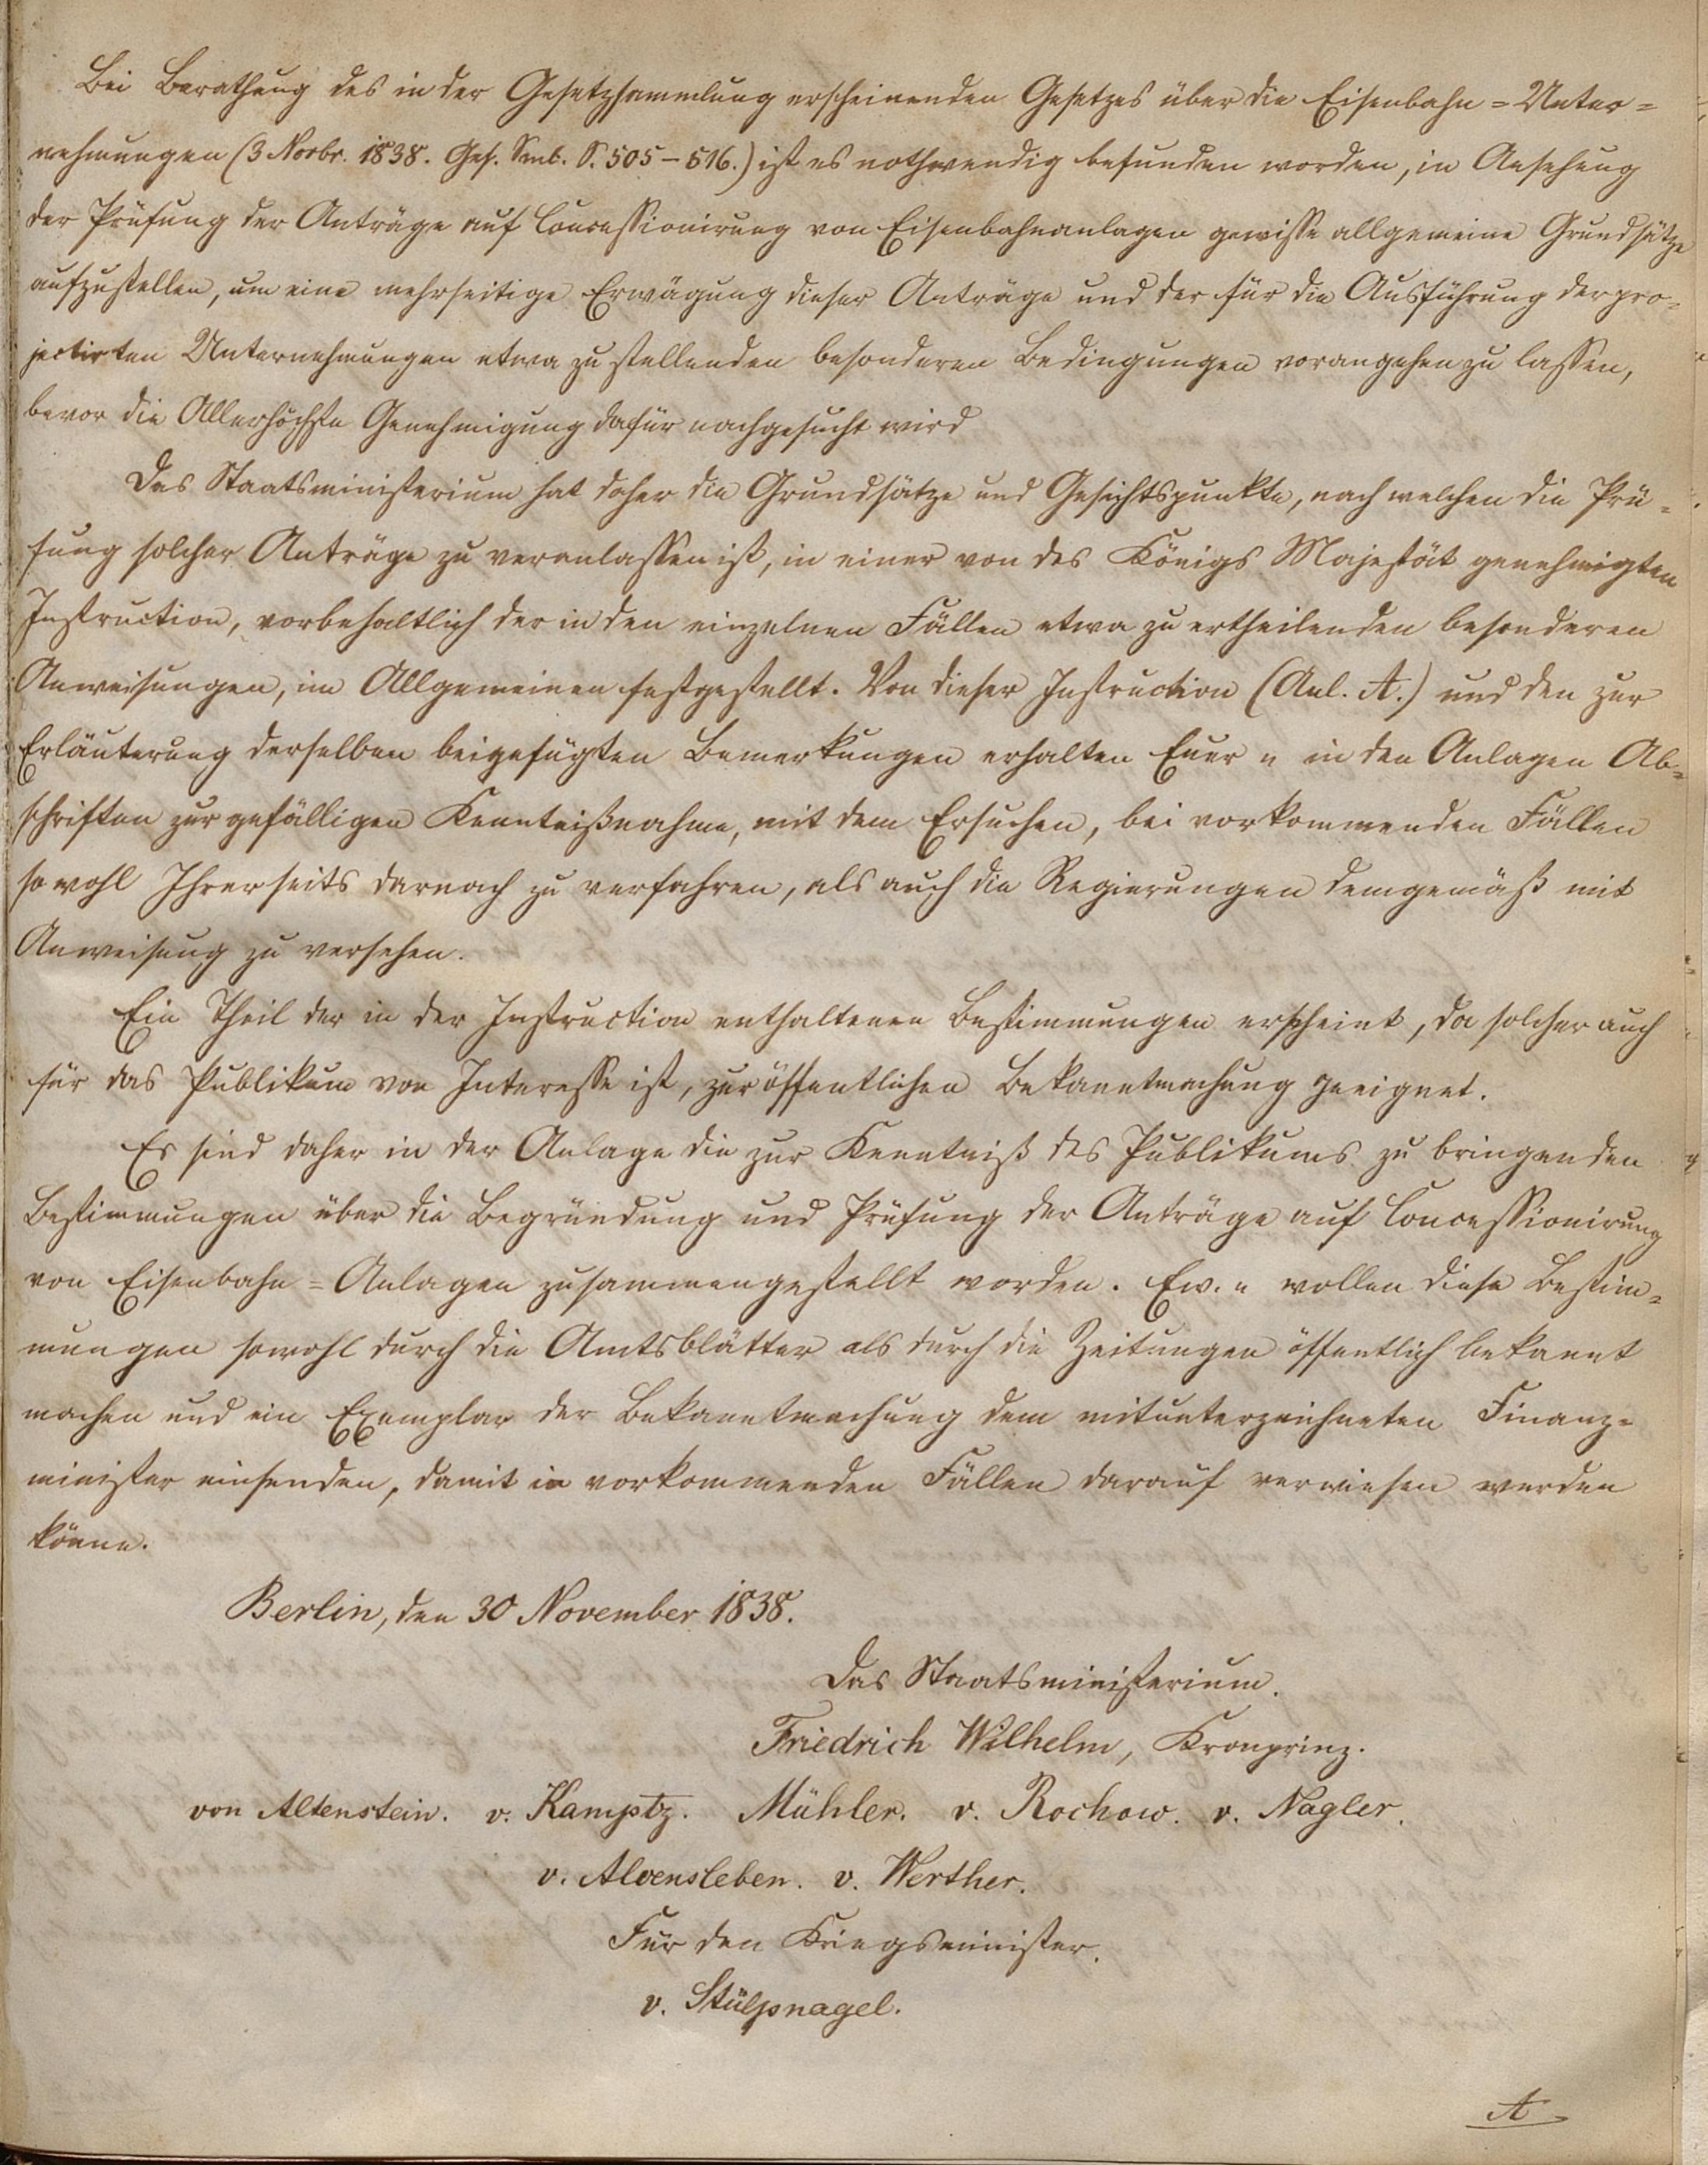 Bei Berathung des in der Gesetzsammlung erscheinenden Gesetzes über die Eisenbahn=Unter=
nehmungen (3 Novbr. 1838. Ges. Sml. S. 505–516.) ist es nothwendig befunden worden, in Ansehung
der Prüfung der Anträge auf Concessionirung von Eisenbahnanlagen gewisse allgemeine Grundsätze
aufzustellen, um eine mehrseitige Erwägung dieser Anträge und der für die Ausführung der pro=
jectirten Unternehmungen etwa zu stellenden besonderen Bedingungen vorangehen zu lassen,
bevor die Allerhöchste Genehmigung dafür nachgesucht wird
Das Staatsministerium hat daher die Grundsätze und Gesichtspunkte, nach welchen die Prü=
fung solcher Anträge zu veranlassen ist, in einer von des Königs Majestät genehmigten
Instruction, vorbehaltlich der in den einzelnen Fällen etwa zu ertheilenden besonderen
Anweisungen, im Allgemeinen festgestellt. Von dieser Instruction (Anl. A.) und den zur
Erläuterung derselben beigefügten Bemerkungen erhalten Euer in den Anlagen Ab=
schriften zur gefälligen Kenntnißnahme, mit dem Ersuchen, bei vorkommenden Fällen
sowohl Ihrerseits darnach zu verfahren, als auch die Regierungen demgemäß mit
Anweisung zu versehen.
Ein Theil der in der Instruction enthaltenen Bestimmungen erscheint, da solcher auch
für das Publikum von Interesse ist, zur öffentlichen Bekanntmachung geeignet.
Es sind daher in der Anlage die zur Kenntniß des Publikums zu bringenden
Bestimmungen über die Begründung und Prüfung der Anträge auf Concessionirung
von Eisenbahn=Anlagen zusammengestellt worden. Ew. wollen diese Bestim=
mungen sowohl durch die Amtsblätter als durch die Zeitungen öffentlich bekannt
machen und ein Exemplar der Bekanntmachung dem mitunterzeichneten Finanz=
minister einsenden, damit in vorkommenden Fällen darauf verwiesen werden
könne.
Berlin, den 30 November 1838.
Das Staatsministerium.
Friedrich Wilhelm, Kronprinz.
von Altenstein. v. Kamptz. Mühler. v. Rochow. v. Nagler.
v. Alvensleben. v. Werther.
Für den Kriegsminister.
v. Stülpnagel.
A